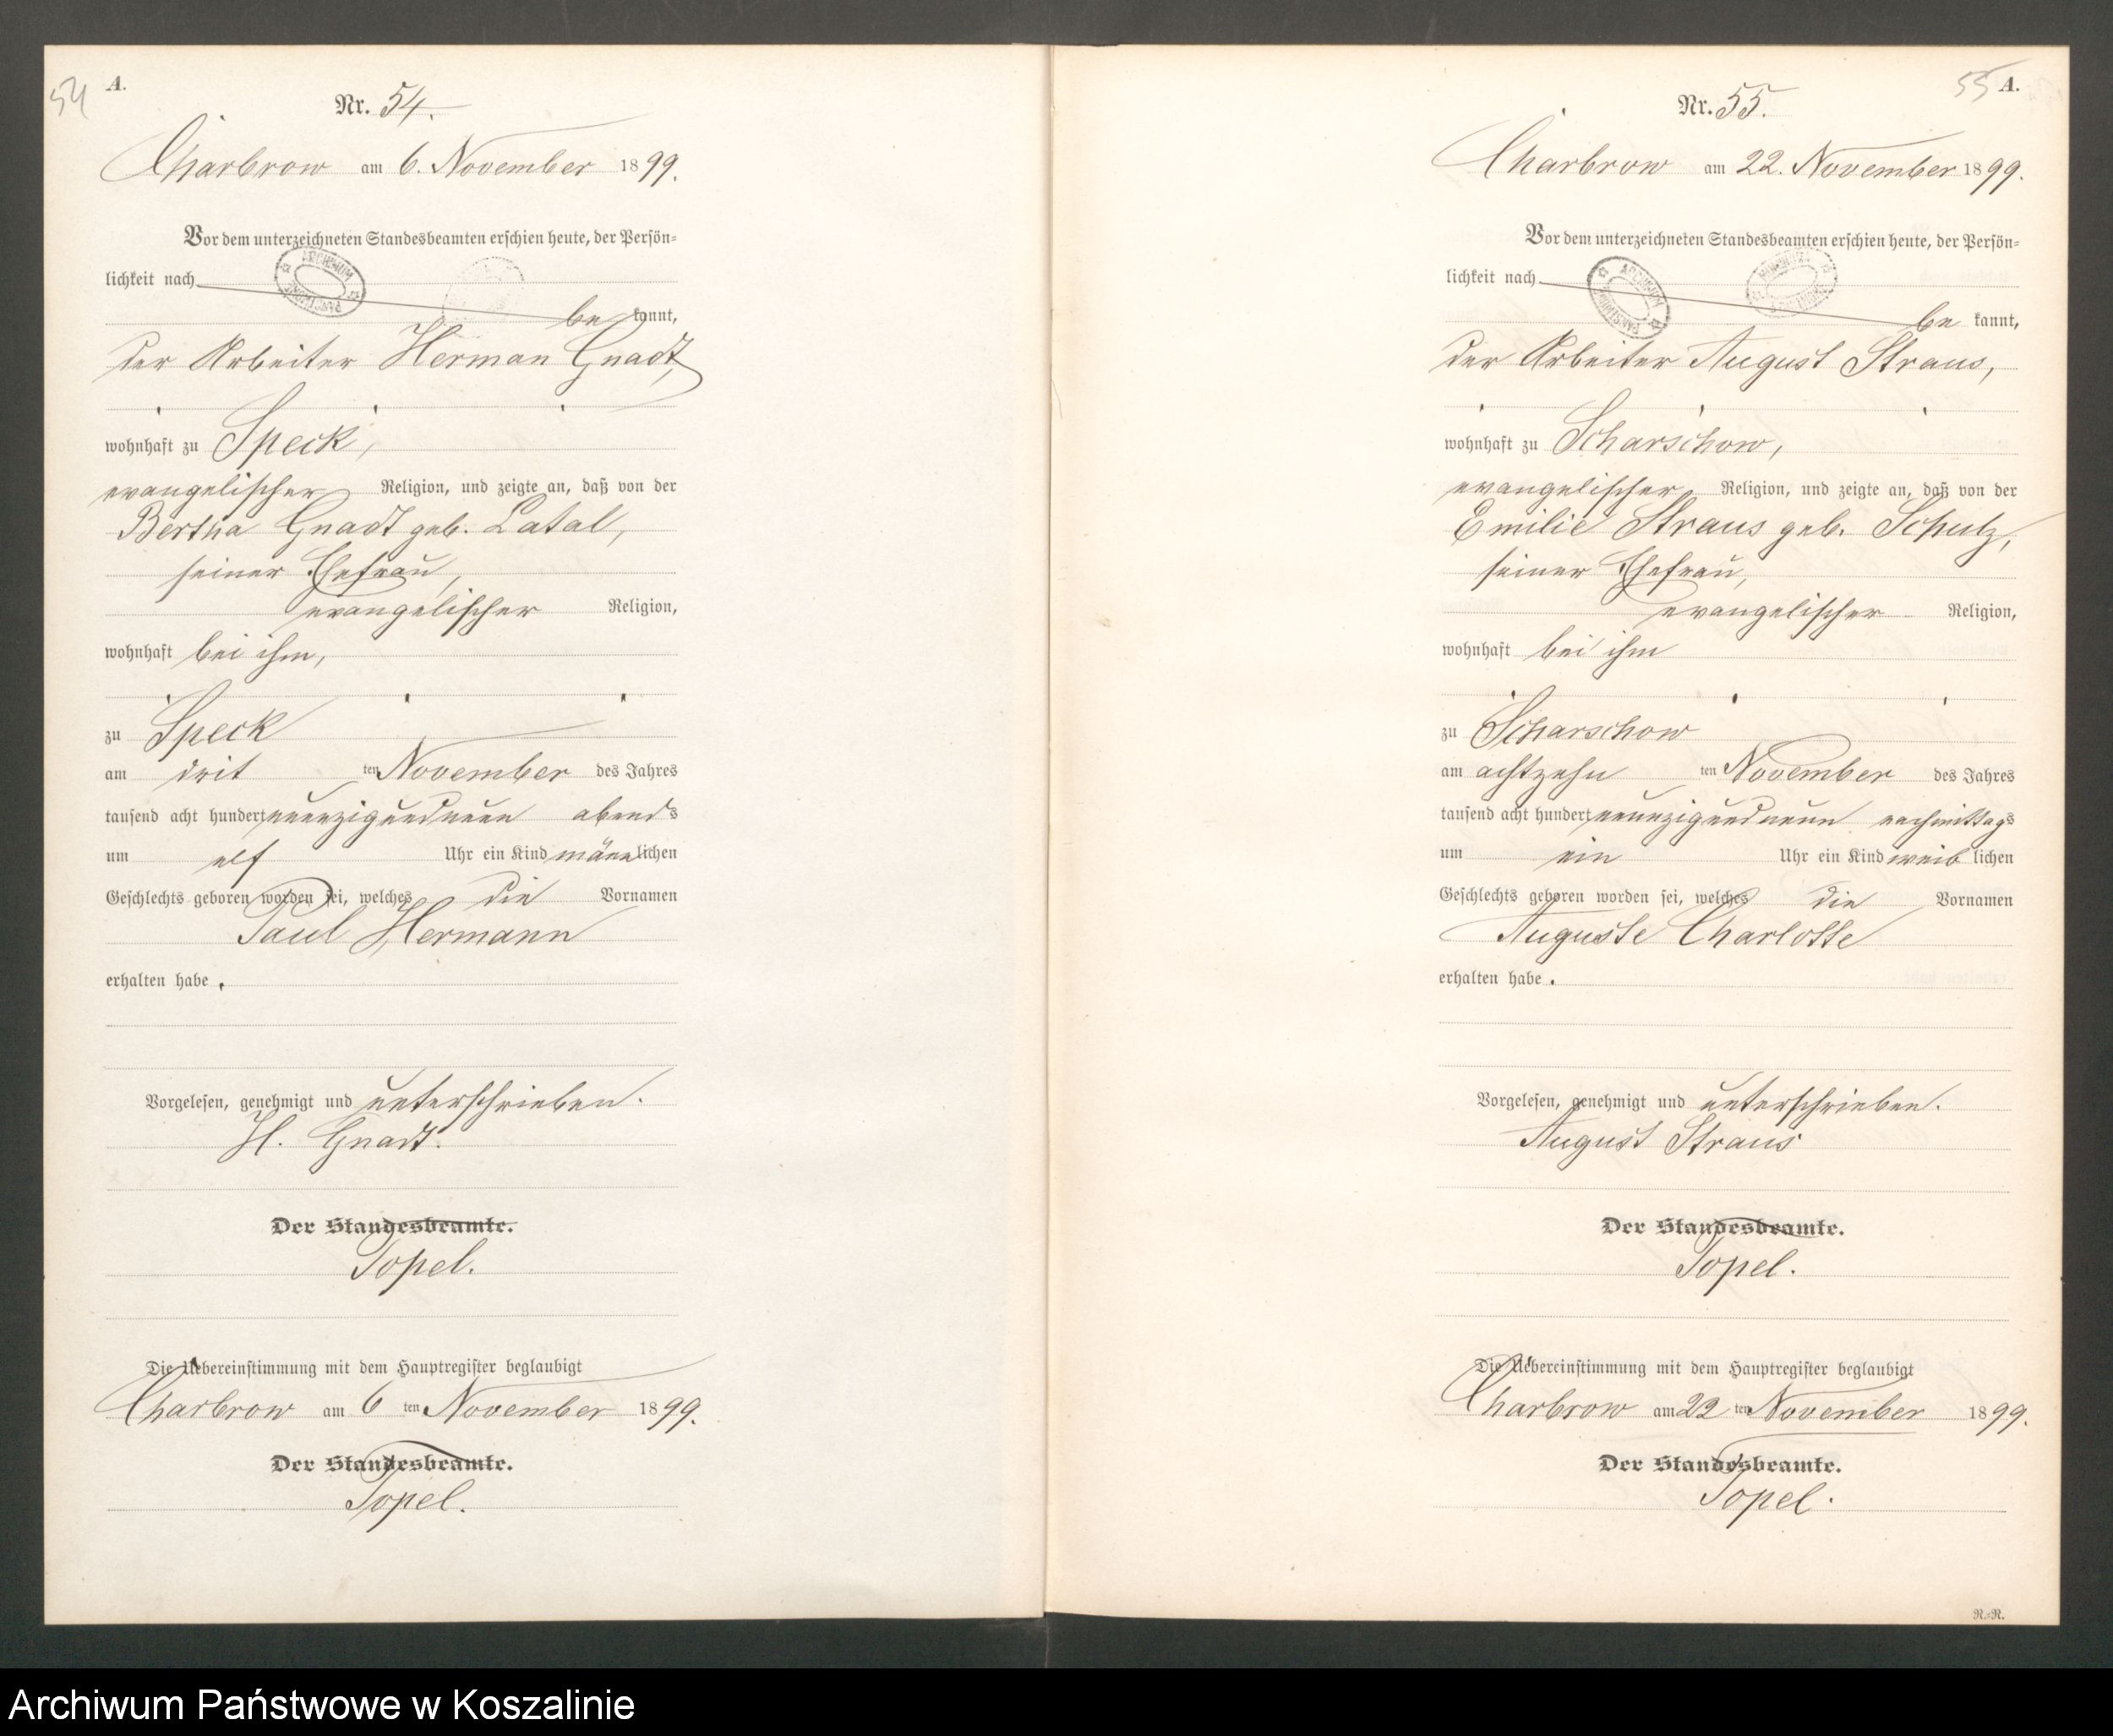 54
A.
Nr. 54.
Charbrow am 6. November 1899.
Vor dem unterzeichneten Standesbeamten erschien heute, der Persön-
lichkeit nach
be kannt,
der Arbeiter Herman Gnadt,
wohnhaft zu Speck,
evangelischer Religion, und zeigte an, daß von der
Bertha Gnadt geb. Latal,
seiner Ehefrau,
evangelischer Religion,
wohnhaft bei ihm,
zu Speck
am drit ten November des Jahres
tausend acht hundert neunzigundneun abends
um elf Uhr ein Kind männlichen
Geschlechts geboren worden sei, welches die Vornamen
Paul Hermann
erhalten habe.
Vorgelesen, genehmigt und unterschrieben.
H. Gnadt.
Der Standesbeamte.
Topel.
Die Uebereinstimmung mit dem Hauptregister beglaubigt
Charbrow am 6 ten November 1899.
Der Standesbeamte.
Topel.
55
A.
Nr. 55.
Charbrow am 22. November 1899.
Vor dem unterzeichneten Standesbeamten erschien heute, der Persön-
lichkeit nach
be kannt,
der Arbeiter August Straus,
wohnhaft zu Scharschow,
evangelischer Religion, und zeigte an, daß von der
Emilie Straus geb. Schulz,
seiner Ehefrau,
evangelischer Religion,
wohnhaft bei ihm
zu Scharschow
am achtzehn ten November des Jahres
tausend acht hundert neunzigundneun nachmittags
um ein Uhr ein Kind weiblichen
Geschlechts geboren worden sei, welches die Vornamen
Auguste Charlotte
erhalten habe.
Vorgelesen, genehmigt und unterschrieben.
August Straus
Der Standesbeamte.
Topel.
Die Uebereinstimmung mit dem Hauptregister beglaubigt
Charbrow am 22 ten November 1899.
Der Standesbeamte.
Topel.
R.-R.
Archiwum Państwowe w Koszalinie